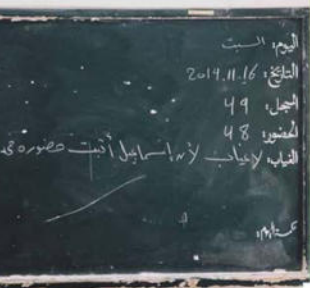 اليوم: السبت
التاريخ: 2019.11.16
السجل: 49
الحضور: 48
الغياب: لاغياب لأن إسماعيل أثبت حضوره